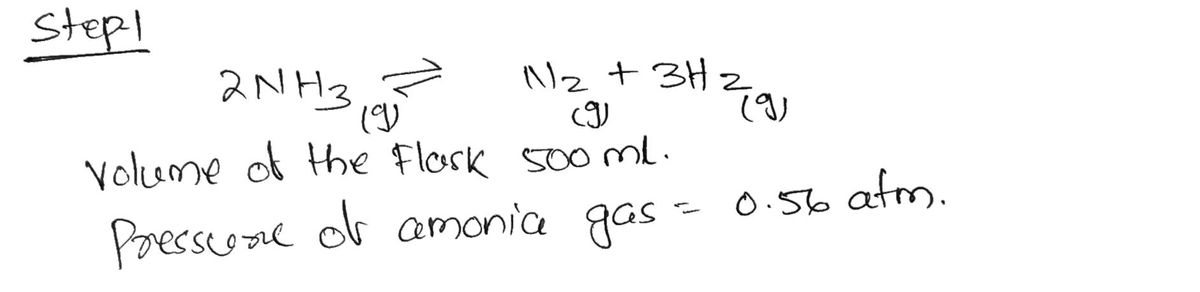 Step1
2NH3(g) ⇌ N2(g) + 3H2(g)
Volume of the Flask 500 ml.
Pressure of amonia gas = 0.56 atm.